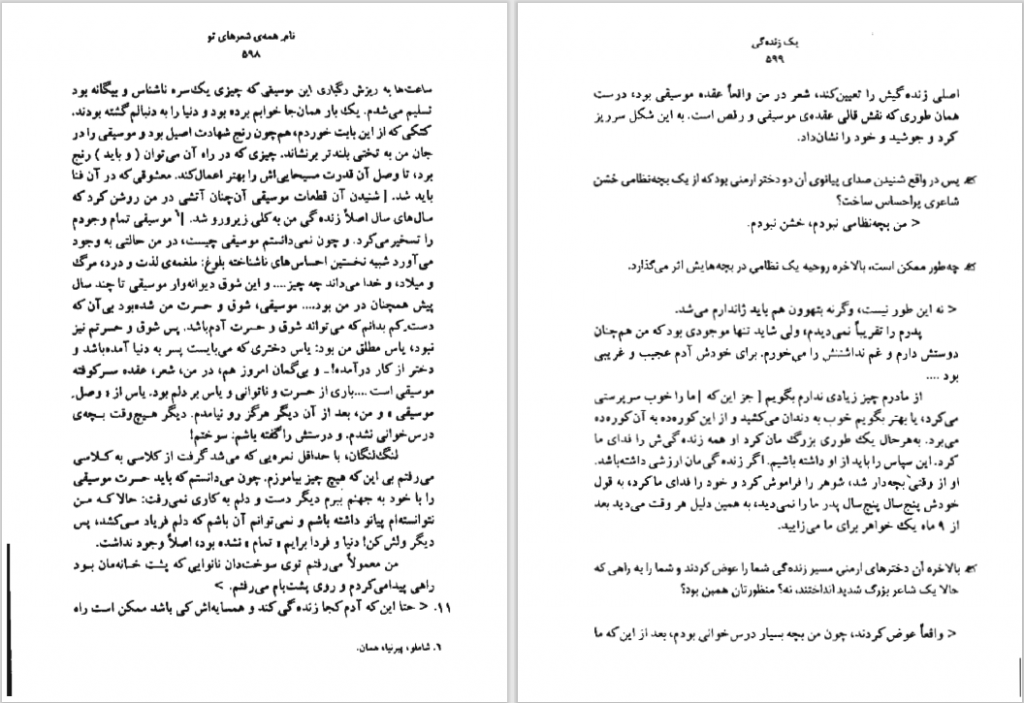 نام همه‌ی شعرهای تو
۵۹۸
ساعت‌ها به ریزش رگباری این موسیقی که چیزی یک‌سره ناشناس و بیگانه بود
تسلیم می‌شدم. یک بار همان‌جا خوابم برده بود و دنیا را به دنبالم گشته بودند.
کتکی که از این بابت خوردم، هم‌چون رنج شهادت اصیل بود و موسیقی را در
جان من به تختی بلندتر برنشاند. چیزی که در راه آن می‌توان ( و باید ) رنج
برد، تا وصل آن قدرت مسیحایی‌اش را بهتر اعمال‌کند. معشوقی که در آن فنا
باید شد. [ شنیدن آن قطعات موسیقی آن‌چنان آتشی در من روشن کرد که
سال‌های سال اصلاً زنده گی من به کلی زیرورو شد. ]۶ موسیقی تمام وجودم
را تسخیر می‌کرد. و چون نمی‌دانستم موسیقی چیست، در من حالتی به وجود
می‌آورد شبیه نخستین احساس‌های ناشناخته بلوغ: ملغمه‌ی لذت و درد، مرگ
و میلاد، و خدا می‌داند چه چیز.... و این شوق دیوانه‌وار موسیقی تا چند سال
پیش همچنان در من بود.... موسیقی، شوق و حسرت من شده‌بود بی‌آن که
دست‌ِ کم بدانم‌که می تواند شوق و حسرت آدم‌باشد. پس شوق و حسرتم نیز
نبود، یاس مطلق من بود: یاس دختری که می‌بایست پسر به دنیا آمده‌باشد و
دختر از کار درآمده!ـ و بی‌گمان امروز هم، در من، شعر، عقده سرکوفته
موسیقی است ....باری از حسرت و ناتوانی و یاس بر دلم بود. یاس از « وصل
موسیقی » و من، بعد از آن دیگر هرگز رو نیامدم. دیگر هیچ‌وقت بچه‌ی
درس‌خوانی نشدم. و درستش را گفته باشم: سوختم!
لنگ‌لنگان، با حداقل نمره‌یی که می‌شد گرفت از کلاسی به کلاسی
می‌رفتم بی این که هیچ چیز بیاموزم. چون می‌دانستم که باید حسرت موسیقی
را با خود به جهنم ببرم دیگر دست و دلم به کاری نمی‌رفت: حالا که من
نتوانسته‌ام پیانو داشته باشم و نمی‌توانم آن باشم که دلم فریاد می‌کشد، پس
دیگر ولش کن! دنیا و فردا برایم « تمام » نشده بود، اصلاً وجود نداشت.
من معمولاً می‌رفتم توی سوخت‌دان نانوایی که پشت خانه‌مان بود
راهی پیدامی‌کردم و روی پشت‌بام می‌رفتم. >
۱۱. < حتا این‌که آدم کجا زنده گی کند و همسایه‌اش کی باشد ممکن است راه
۶. شاملو، پیرنیا، همان.
یک زنده‌گی
۵۹۹
اصلی زنده گیش را تعیین‌کند، شعر در من واقعاً عقده موسیقی بود، درست
همان طوری‌که نقش قالی عقده‌ی موسیقی و رقص است. به این شکل سرریز
کرد و جوشید و خود را نشان‌داد.
پس در واقع شنیدن صدای پیانوی آن دو دختر ارمنی بودکه از یک بچه‌نظامی خشن
شاعری پراحساس ساخت؟
< من بچه‌نظامی نبودم، خشن نبودم.
چه‌طور ممکن است، بالاخره روحیه یک نظامی در بچه‌هایش اثر می‌گذارد.
< نه این طور نیست، وگرنه بتهوون هم باید ژاندارم می‌شد.
پدرم را تقریباً نمی‌دیدم، ولی شاید تنها موجودی بود که من هم‌چنان
دوستش دارم و غم نداشتنش را می‌خورم. برای خودش آدم عجیب و غریبی
بود ....
از مادرم چیز زیادی ندارم بگویم [ جز این که ] ما را خوب سرپرستی
می‌کرد، یا بهتر بگویم خوب به دندان می‌کشید و از این کوره‌ده به آن‌کوره‌ده
می‌برد. به‌هرحال یک طوری بزرگ مان‌کرد او همه زنده گی‌ش را فدای ما
کرد. این سپاس را باید از او داشته باشیم. اگر زنده گی‌مان ارزشی داشته‌باشد.
او از وقتی بچه‌دار شد، شوهر را فراموش‌کرد و خود را فدای ماکرد، به قول
خودش پنج‌سال پنج‌سال پدر ما را نمی‌دید، به همین دلیل هر وقت می‌دید بعد
از ۹ ماه یک خواهر برای ما می‌زایید.
بالاخره آن دخترهای ارمنی مسیر زنده‌گی شما را عوض کردند و شما را به راهی که
حالا یک شاعر بزرگ شدید انداختند، نه؟ منظورتان همین بود؟
< واقعاً عوض‌کردند، چون من بچه بسیار درس‌خوانی بودم، بعد از این‌که ما